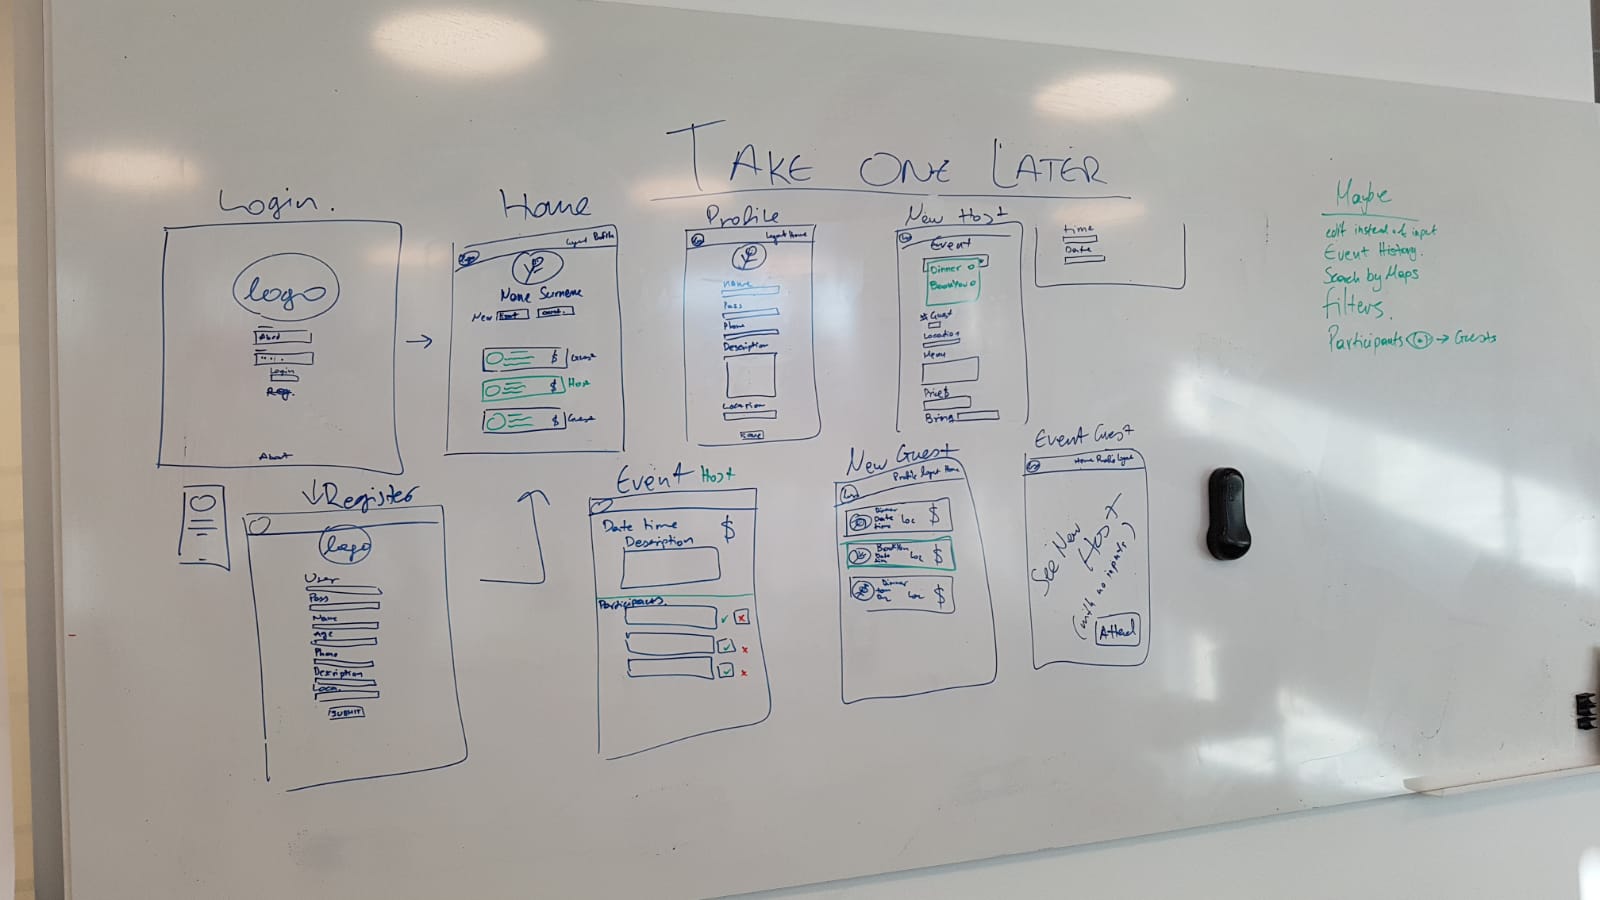 TAKE ONE LATER
Login.
logo
Login
Reg.
About
Home
Logout Profile
Name Surname
New Host Guest
$ Guest
$ Host
$ Guest
Profile
Logout Home
Name
Pass
Phone
Description
Location
Save
New Host
Event
Dinner
Guest
Location
Menu
Price $
Bring
time
Date
Maybe
edit instead of input
Event History.
Search by Maps
filters.
Participants → Guests
Register
logo
User
Pass
Name
Age
Phone
Description
Loca.
SUBMIT
Event Host
Date time $
Description
Participants.
New Guest
Profile Logout Home
Dinner
Date Loc $
time
Date Loc $
time
Dinner
Loc $
Event Guest
Home Profile Logout
See New
Host
(with no inputs)
Attend